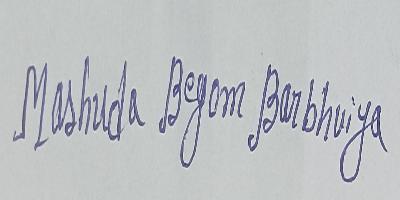 Mashuda Begom Barbhuiya